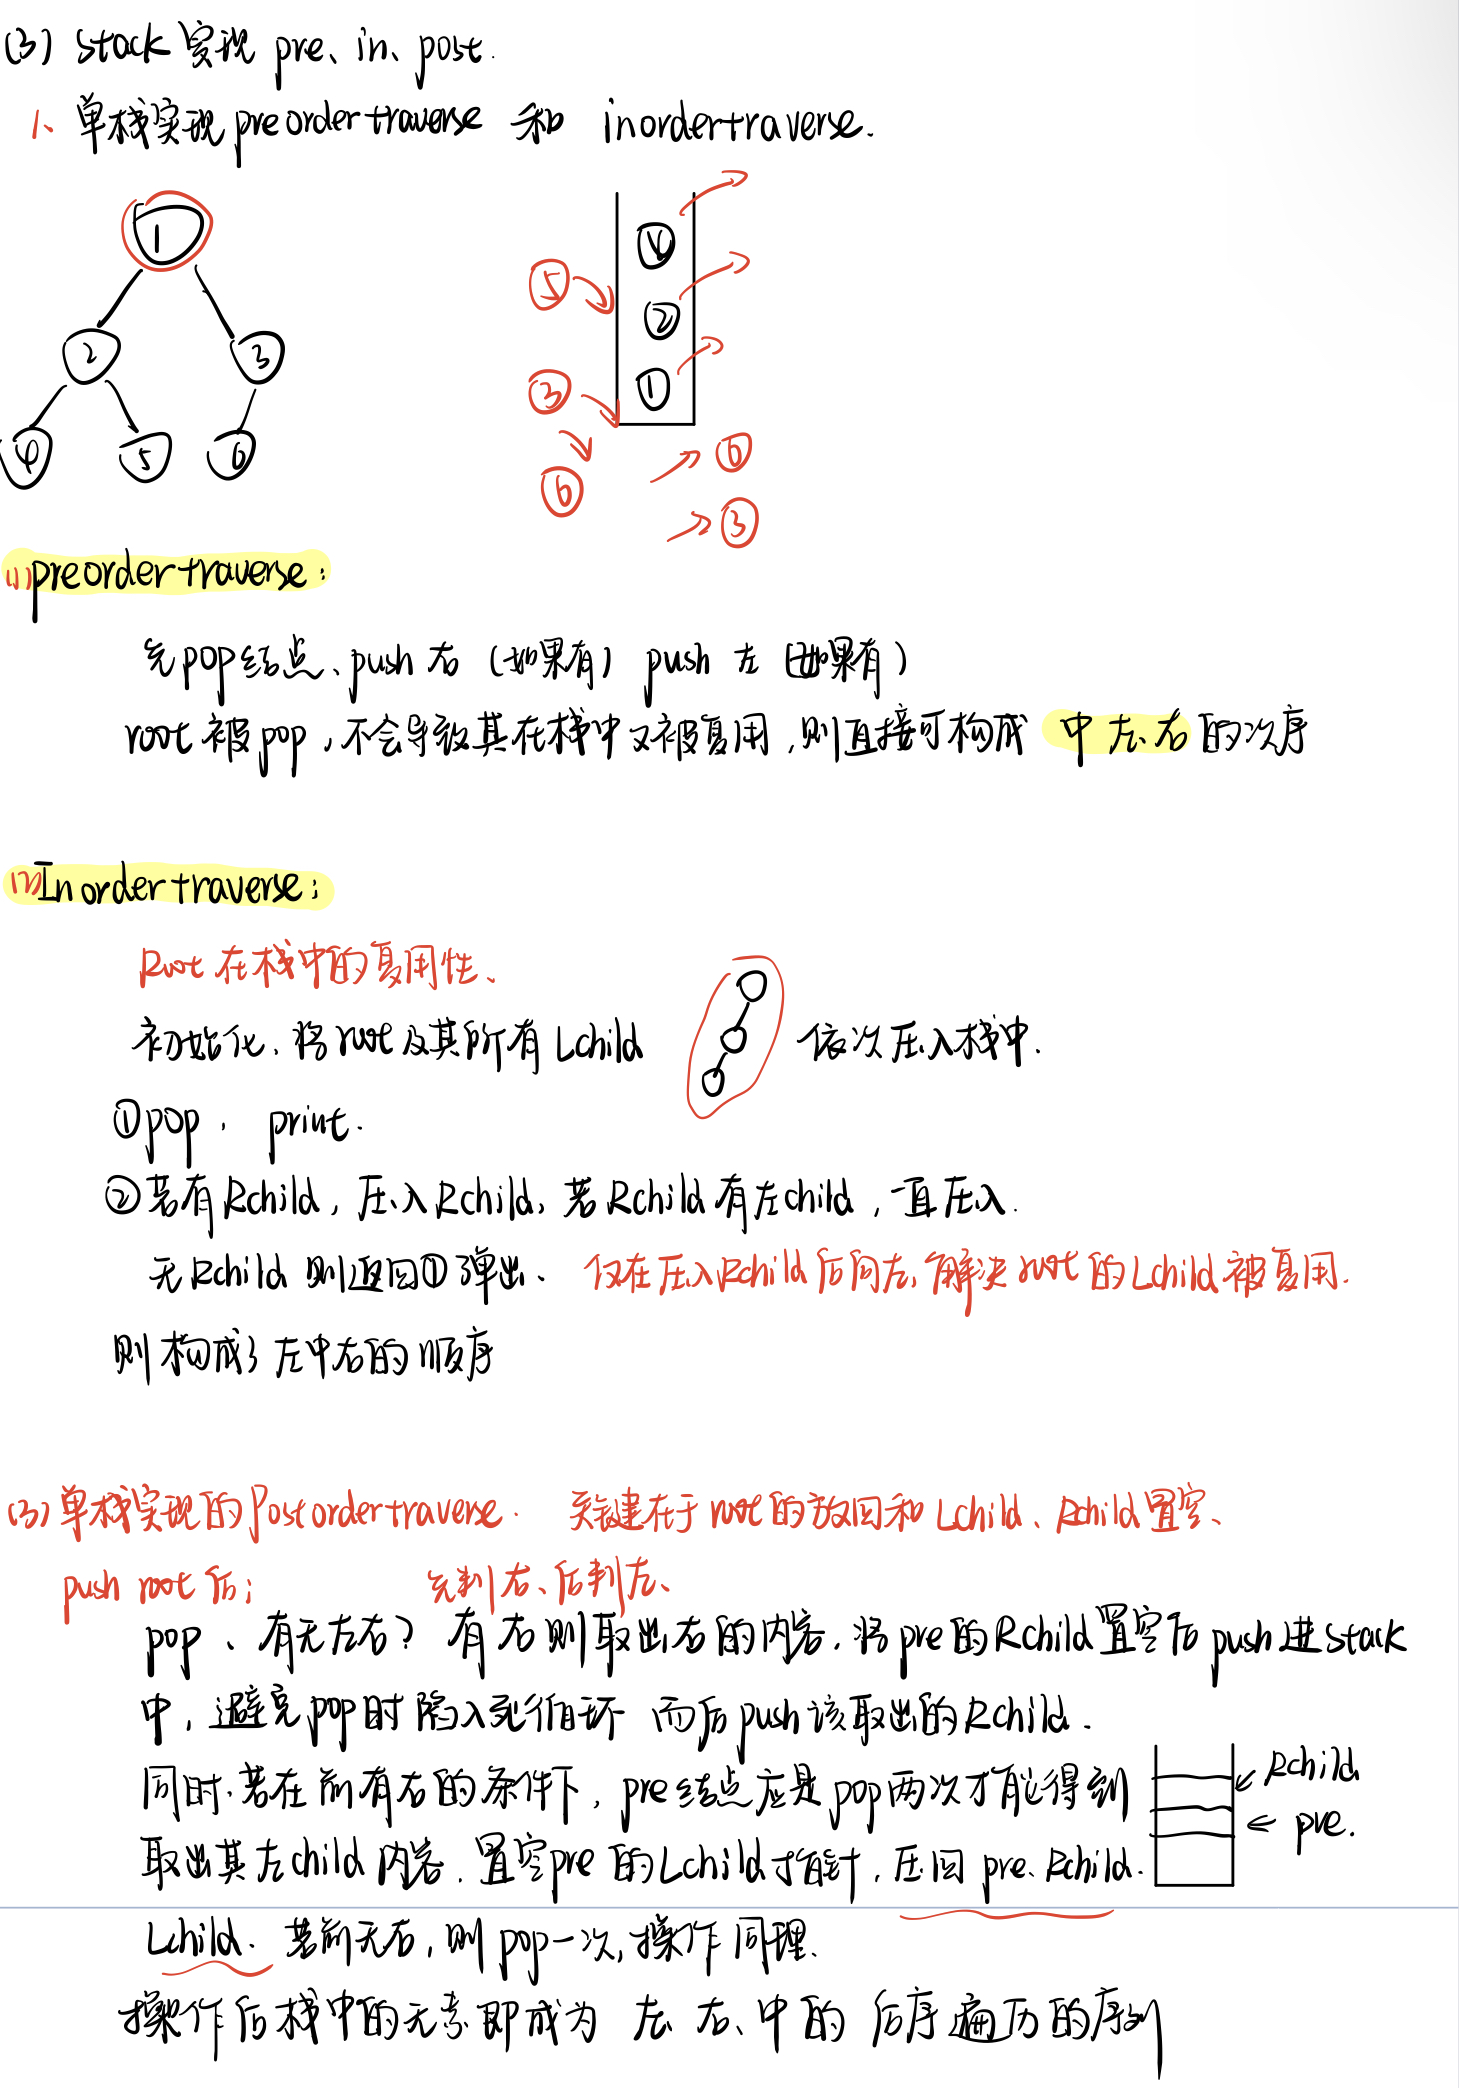 (3) stack实现 pre、in、post.
1、单栈实现preordertraverse 和 inordertraverse.
1
2 3
4 5 6
4
2
1
5
3
6
6
3
(1)preordertraverse:
先pop结点、push 右(如果有) push 左(如果有)
root 被pop,不会导致其在栈中又被复用,则直接可构成 中左、右的次序
(2)Inordertraverse:
Root在栈中的复用性、
初始化、将root及其所有Lchild 依次压入栈中.
①pop, print.
②若有Rchild, 压入Rchild, 若Rchild有左child, 一直压入.
无Rchild则返回①弹出、 仅在压入Rchild后向左,解决root的Lchild被复用.
则构成了左中右的顺序
(3)单栈实现的Postordertraverse. 关键在于root的放回和Lchild、Rchild置空、
push root后; 先判右、后判左、
pop、有无左右? 有右则取出右的内容,将pre的Rchild置空后push进stack
中,避免pop时陷入死循环 而后push该取出的Rchild.
同时,若在前有右的条件下,pre结点应是pop两次才能得到
取出其左child内容.置空pre的Lchild指针,压回pre、Rchild.
Rchild
pre.
Lchild. 若前无右,则pop一次,操作同理.
操作后栈中的元素即成为 左、右、中的 后序遍历的序列